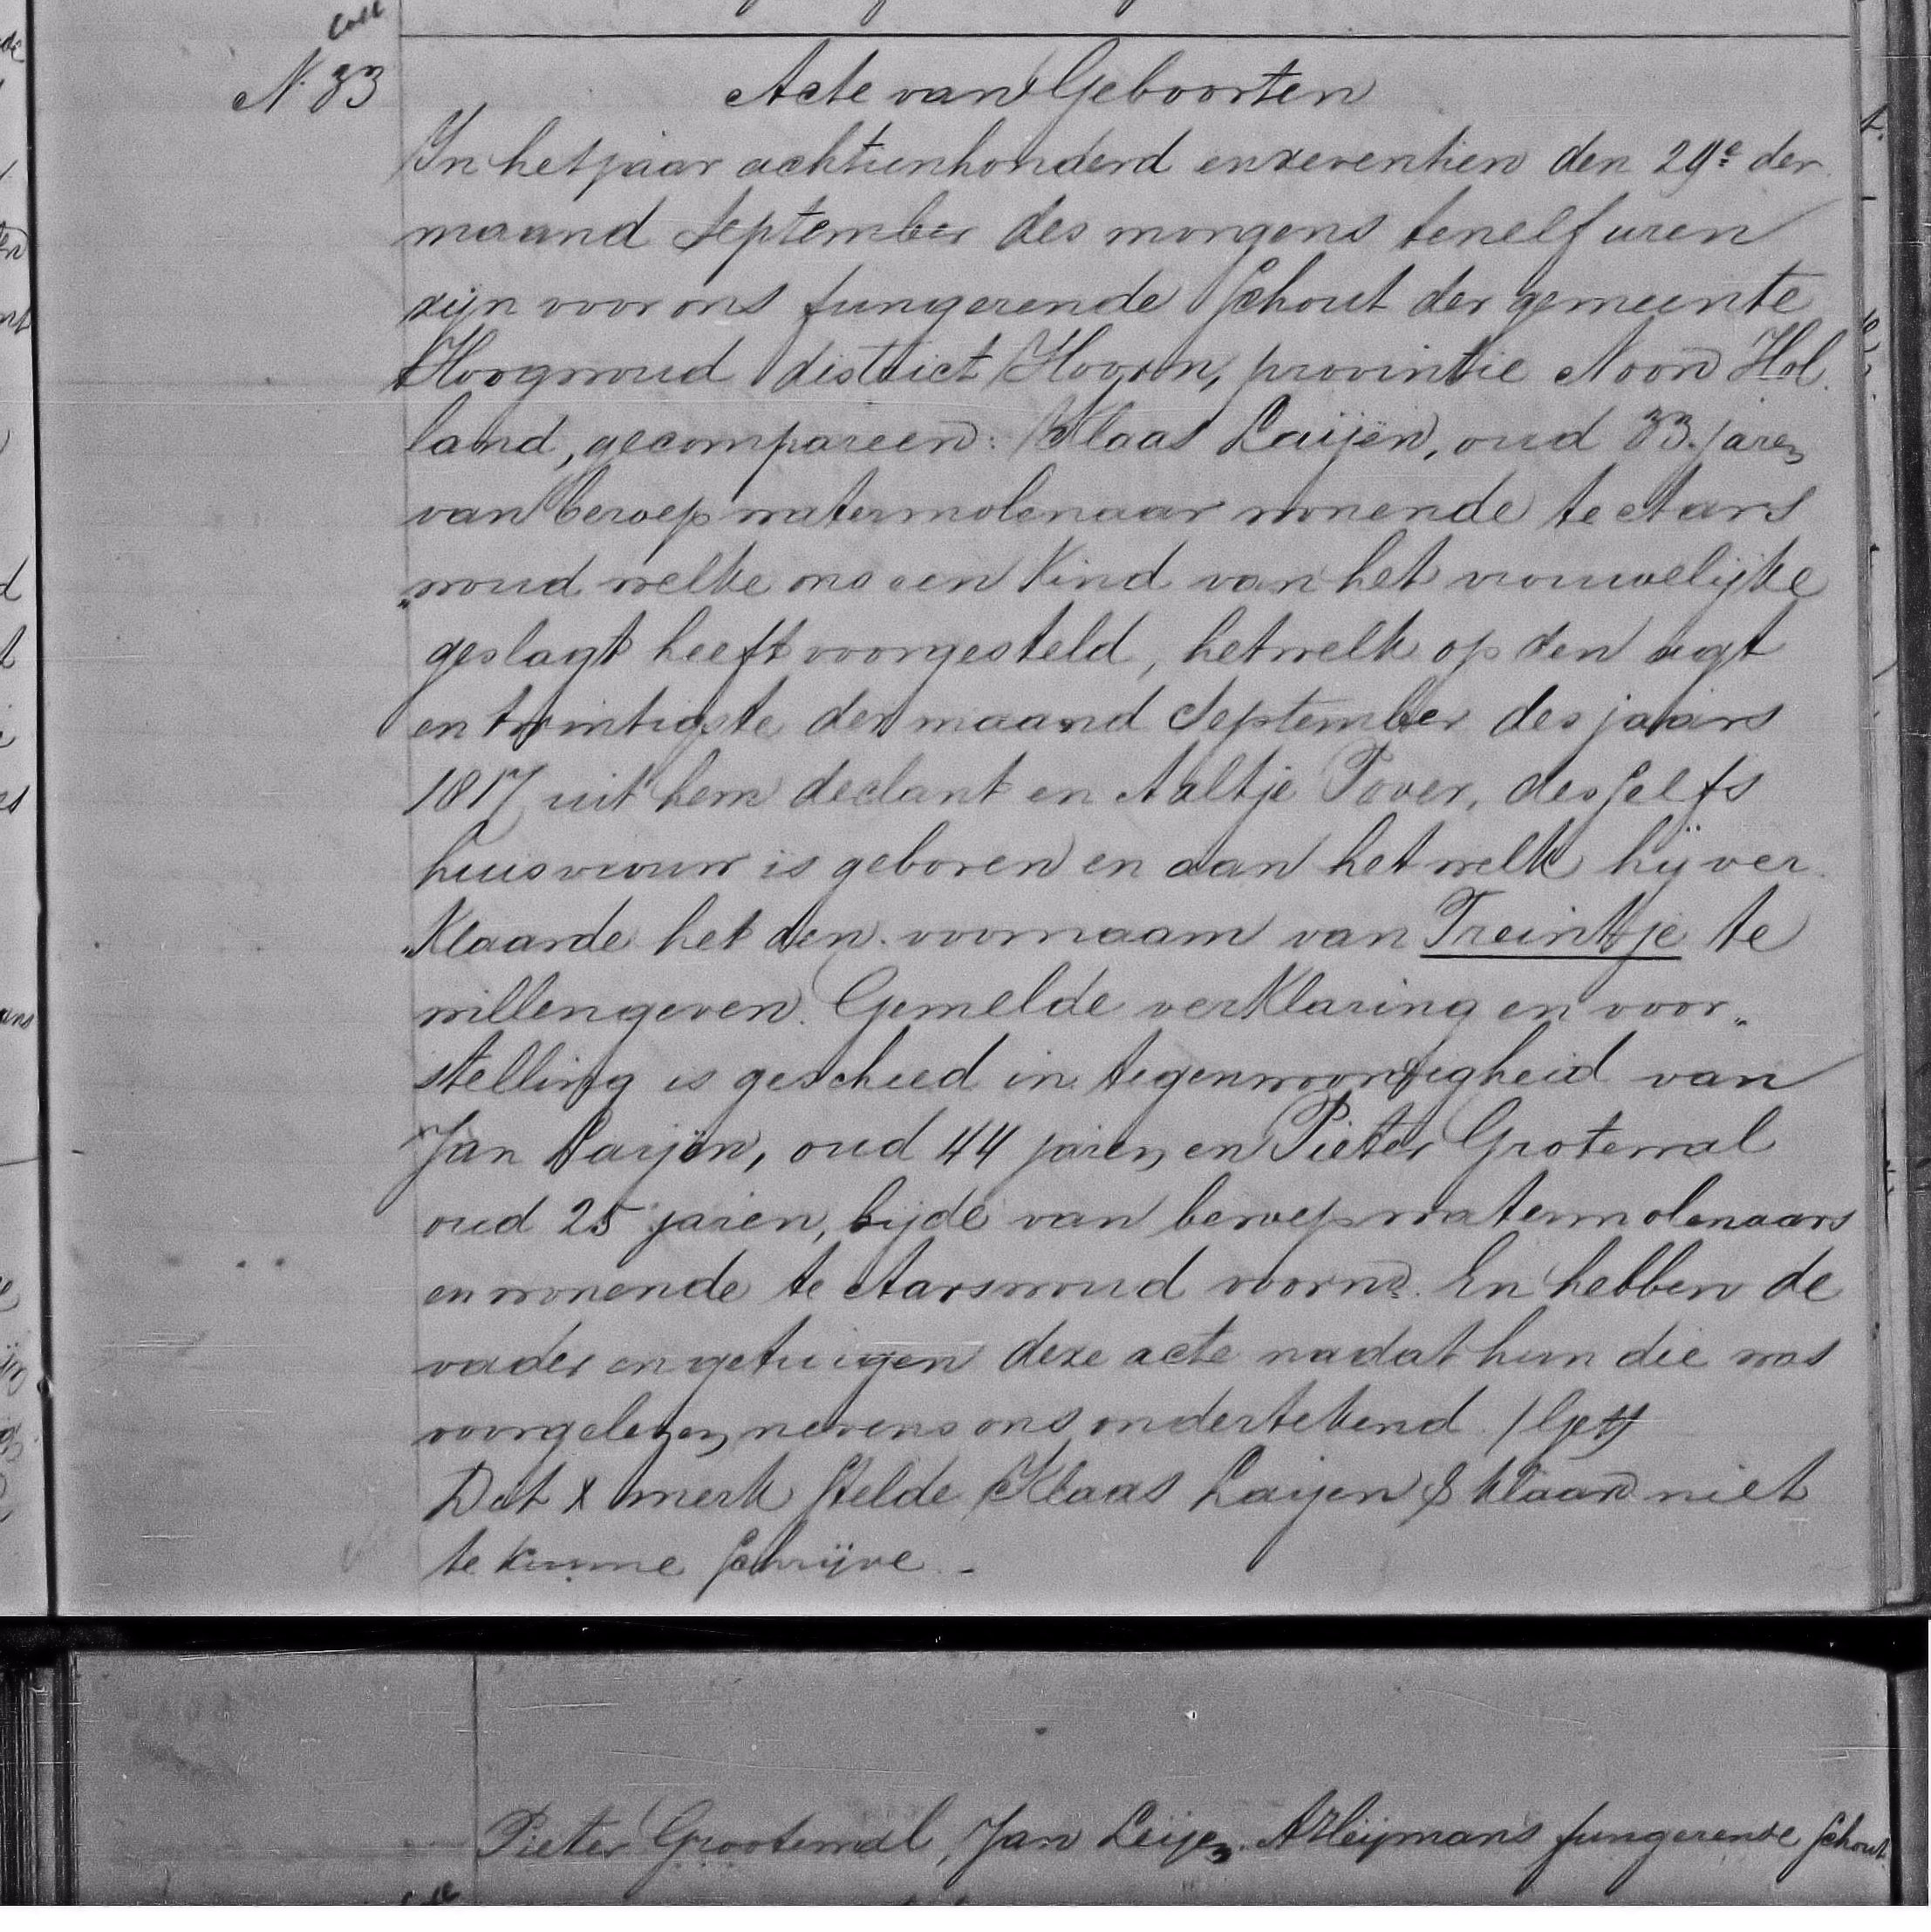 Coll
N. 33
Acte van Geboorten
In het jaar achttienhonderd en zeventien den 29e der
maand September des morgens ten elf uren
zijn voor ons fungerende Schout der gemeente
Hoogwoud district Hoorn, provintie Noord Hol
land, gecompareerd: Klaas Laijen, oud 33 jaren
van beroep watermolenaar wonende te Aars
„woud welke ons een Kind van het vrouwelijke
geslagt heeft voorgesteld, hetwelk op den agt
en twintigste der maand September des jaars
1817 uit hem declant en Aaltje Pover, desselfs
huisvrouw is geboren en aan hetwelk hij ver
„Klaarde het den voornaam van Treintje te
willen geven. Gemelde verklaring en voor„
stelling is geschied in tegenwoordigheid van
Jan Laijen, oud 44 jaren en Pieter Grotewal
oud 25 jaren, bijde van beroep watermolenaars
en wonende te Aarswoud voornd. En hebben de
vader en getuigen deze acte nadat hun die was
voorgelezen nevens ons ondertekend /Get/
Dat x merk stelde Klaas Laijen & klaard niet
te kunne schrijve.-
Pieter Grootewal, Jan Leijen. A Kleijmans fungerende Schout